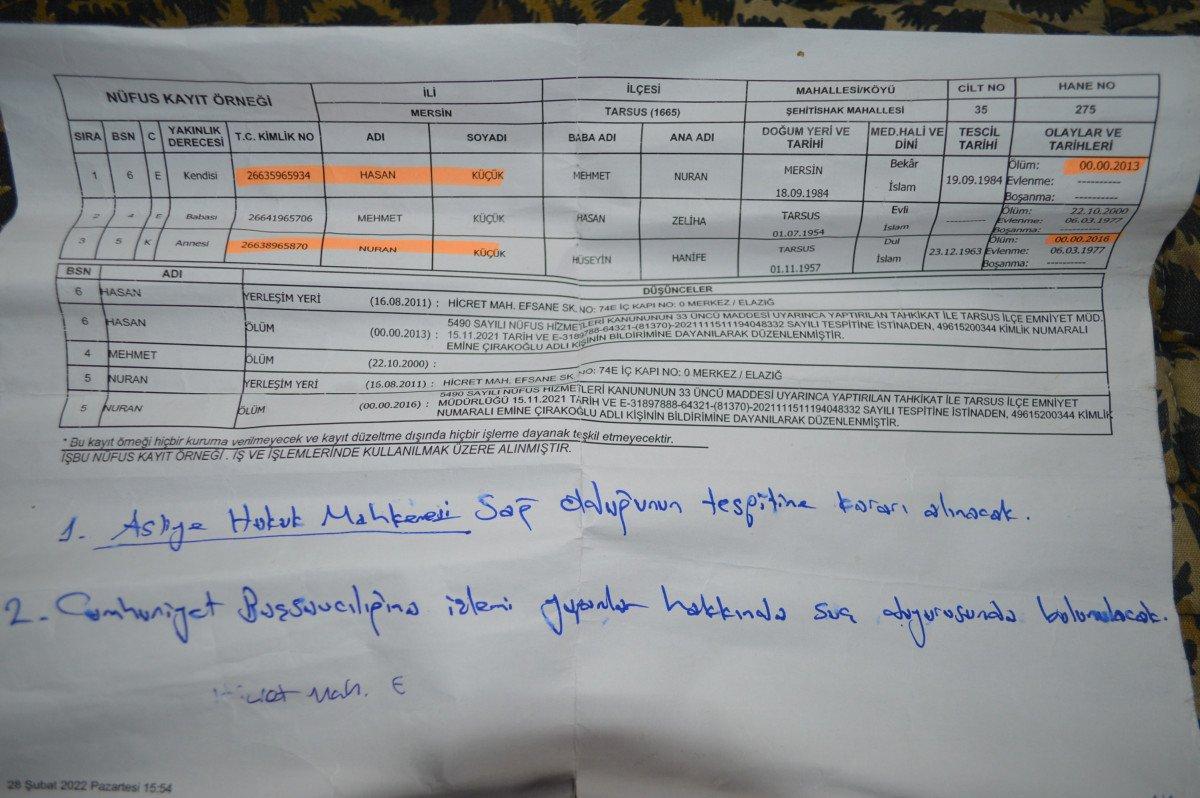 NÜFUS KAYIT ÖRNEĞİ İLİ İLÇESİ MAHALLESİ/KÖYÜ CİLT NO HANE NO
MERSİN TARSUS (1665) ŞEHİTİSHAK MAHALLESİ 35 275
SIRA BSN C YAKINLIK DERECESİ T.C. KİMLİK NO ADI SOYADI BABA ADI ANA ADI DOĞUM YERİ VE TARİHİ MED.HALİ VE DİNİ TESCİL TARİHİ OLAYLAR VE TARİHLERİ
1 6 E Kendisi 26635965934 HASAN KÜÇÜK MEHMET NURAN MERSİN 18.09.1984 Bekâr İslam 19.09.1984 Ölüm: 00.00.2013 Evlenme: ---------- Boşanma: ----------
2 4 E Babası 26641965706 MEHMET KÜÇÜK HASAN ZELİHA TARSUS 01.07.1954 Evli İslam ---------- Ölüm: 22.10.2000 Evlenme: 06.03.1977 Boşanma: ----------
3 5 K Annesi 26638965870 NURAN KÜÇÜK HÜSEYİN HANİFE TARSUS 01.11.1957 Dul İslam 23.12.1963 Ölüm: 00.00.2016 Evlenme: 06.03.1977 Boşanma: ----------
BSN ADI DÜŞÜNCELER
6 HASAN YERLEŞİM YERİ (16.08.2011) : HİCRET MAH. EFSANE SK. NO: 74E İÇ KAPI NO: 0 MERKEZ / ELAZIĞ
6 HASAN ÖLÜM (00.00.2013) : 5490 SAYILI NÜFUS HİZMETLERİ KANUNUNUN 33 ÜNCÜ MADDESİ UYARINCA YAPTIRILAN TAHKİKAT İLE TARSUS İLÇE EMNİYET MÜD.
15.11.2021 TARİH VE E-31897888-64321-(81370)-2021111511194048332 SAYILI TESPİTİNE İSTİNADEN, 49615200344 KİMLİK NUMARALI
EMİNE ÇIRAKOĞLU ADLI KİŞİNİN BİLDİRİMİNE DAYANILARAK DÜZENLENMİŞTİR.
4 MEHMET ÖLÜM (22.10.2000) :
5 NURAN YERLEŞİM YERİ (16.08.2011) : HİCRET MAH. EFSANE SK. NO: 74E İÇ KAPI NO: 0 MERKEZ / ELAZIĞ
5 NURAN ÖLÜM (00.00.2016) : 5490 SAYILI NÜFUS HİZMETLERİ KANUNUNUN 33 ÜNCÜ MADDESİ UYARINCA YAPTIRILAN TAHKİKAT İLE TARSUS İLÇE EMNİYET
MÜDÜRLÜĞÜ 15.11.2021 TARİH VE E-31897888-64321-(81370)-2021111511194048332 SAYILI TESPİTİNE İSTİNADEN, 49615200344 KİMLİK
NUMARALI EMİNE ÇIRAKOĞLU ADLI KİŞİNİN BİLDİRİMİNE DAYANILARAK DÜZENLENMİŞTİR.
* Bu kayıt örneği hiçbir kuruma verilmeyecek ve kayıt düzeltme dışında hiçbir işleme dayanak teşkil etmeyecektir.
İŞBU NÜFUS KAYIT ÖRNEĞİ . İŞ VE İŞLEMLERİNDE KULLANILMAK ÜZERE ALINMIŞTIR.
1. Asliye Hukuk Mahkemesi Sağ olduğunun tespitine kararı alınacak.
2. Cumhuriyet Başsavcılığına işlemi yapanlar hakkında suç duyurusunda bulunulacak.
Hicret Mah. E
28 Şubat 2022 Pazartesi 15:54